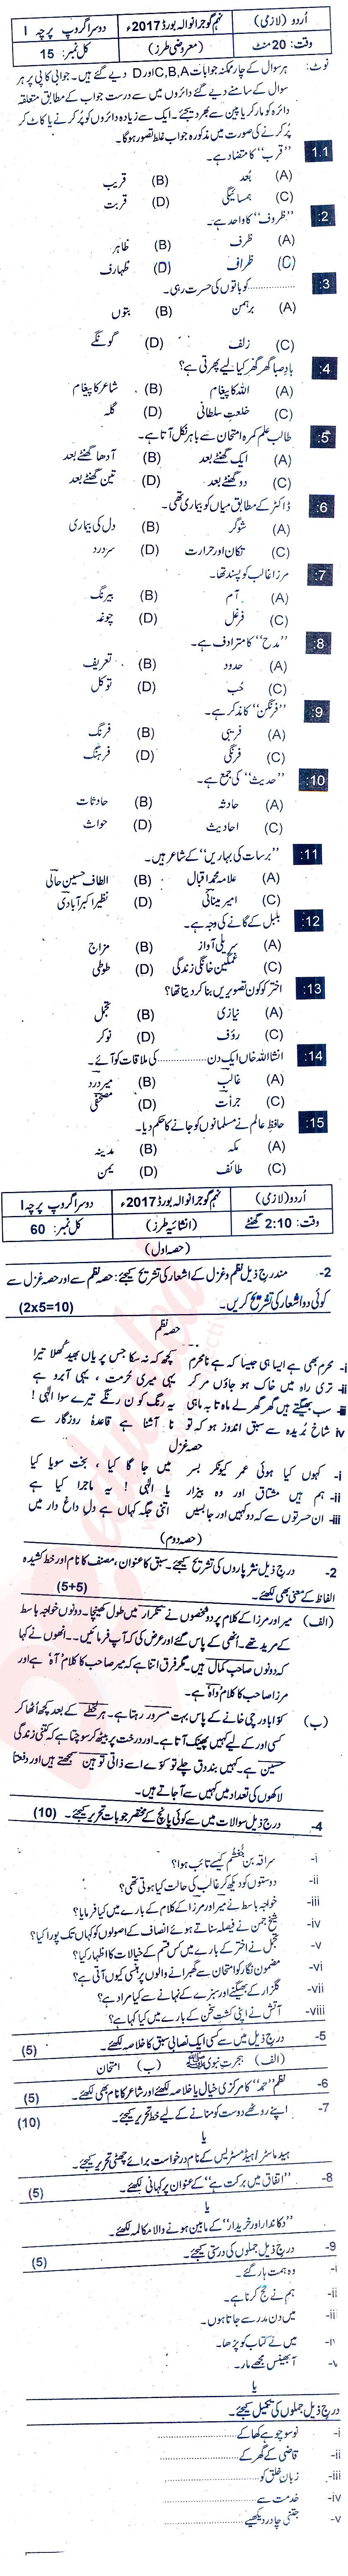 اُردو (لازمی) نہم گوجرانوالہ بورڈ 2017ء دوسرا گروپ پرچہ I
وقت: 20 منٹ (معروضی طرز) کل نمبر: 15
نوٹ: ہر سوال کے چار ممکنہ جوابات A,B,C اور D دیے گئے ہیں۔ جوابی کاپی پر ہر
سوال کے سامنے دیے گئے دائروں میں سے درست جواب کے مطابق متعلقہ
دائرہ کو مارکر یا پین سے بھر دیجئے۔ ایک سے زیادہ دائروں کو پُر کرنے یا کاٹ کر
پُر کرنے کی صورت میں مذکورہ جواب غلط تصور ہوگا۔
1.1 ”قرب“ کا متضاد ہے۔
(A) بُعد (B) قریب
(C) ہمسائیگی (D) قربت
2: ”ظروف“ کا واحد ہے۔
(A) ظرف (B) ظاہر
(C) ظراف (D) ظہارف
3: ............ کو باتوں کی حسرت رہی۔
(A) برہمن (B) بتوں
(C) زلف (D) گونگے
4: بادِ صبا گھر گھر کیا لیے پھرتی ہے؟
(A) اللہ کا پیغام (B) شاعر کا پیغام
(C) خلعتِ سلطانی (D) گلہ
5: طالب علم کمرہ امتحان سے باہر نکل آتا ہے۔
(A) ایک گھنٹے بعد (B) آدھا گھنٹے بعد
(C) دو گھنٹے بعد (D) تین گھنٹے بعد
6: ڈاکٹر کے مطابق میاں کو بیماری تھی۔
(A) شوگر (B) دل کی بیماری
(C) تکان اور حرارت (D) سر درد
7: مرزا غالب کو پسند تھا۔
(A) آم (B) بیرنگ
(C) فرغل (D) چوغہ
8: ”مدح“ کا مترادف ہے۔
(A) حدود (B) تعریف
(C) حُب (D) توکل
9: ”فرنگن“ کا مذکر ہے۔
(A) فریبی (B) فرنگ
(C) فرنگی (D) فرہنگ
10: ”حدیث“ کی جمع ہے۔
(A) حادثہ (B) حادثات
(C) احادیث (D) حواث
11: ”برسات کی بہاریں“ کے شاعر ہیں۔
(A) علامہ محمد اقبال (B) الطاف حسین حالی
(C) امیر مینائی (D) نظیر اکبر آبادی
12: بلبل کے گانے کی وجہ ہے۔
(A) سریلی آواز (B) مزاج
(C) غمگین خانگی زندگی (D) طوطی
13: اختر کو کون تصویریں بنا کر دیتا تھا؟
(A) نیازی (B) تجمل
(C) رؤف (D) نوکر
14: انشا اللہ خاں ایک دن ............ کی ملاقات کو آئے۔
(A) غالب (B) میر درد
(C) جرأت (D) مصحفی
15: حافظِ عالم نے مسلمانوں کو جانے کا حکم دیا۔
(A) مکہ (B) مدینہ
(C) طائف (D) یمن
اُردو (لازمی) نہم گوجرانوالہ بورڈ 2017ء دوسرا گروپ پرچہ I
وقت: 2:10 گھنٹے (انشائیہ طرز) کل نمبر: 60
(حصہ اول)
2- مندرجہ ذیل نظم و غزل کے اشعار کی تشریح کیجئے: حصہ نظم سے اور حصہ غزل سے
کوئی دو اشعار کی تشریح کریں۔ (2x5=10)
حصہ نظم
i- محرم بھی ہے ایسا ہی جیسا کہ ہے نامحرم کچھ کہہ نہ سکا جس پر یاں بھید کھلا تیرا
ii- تری راہ میں خاک ہو جاؤں مر کر یہی میری حُرمت ، یہی آبرو ہے
iii- سب بھیگتے ہیں گھر گھر لے ماہ تا بہ ماہی یہ رنگ کون رنگے تیرے سوا الٰہی !
iv- شاخِ بُریدہ سے سبق اندوز ہو کہ تُو نا آشنا ہے قاعدۂ روزگار سے
حصہ غزل
i- کہوں کیا ہوئی عمر کیونکر بسر میں جا گا کیا ، بخت سویا کیا
ii- ہم ہیں مشتاق اور وہ بیزار یا الٰہی ! یہ ماجرا کیا ہے
iii- ان حسرتوں سے کہہ دو کہیں اور جا بسیں اتنی جگہ کہاں ہے دلِ داغ دار میں
(حصہ دوم)
2- درج ذیل نثر پاروں کی تشریح کیجئے۔ سبق کا عنوان، مصنف کا نام اور خط کشیدہ
الفاظ کے معنی بھی لکھئے۔ (5+5)
(الف) میر اور مرزا کے کلام پر دو شخصوں نے تکرار میں طول کھینچا۔ دونوں خواجہ باسط
کے مرید تھے۔ اُنھی کے پاس گئے اور عرض کی کہ آپ فرمائیں۔۔ انھوں نے کہا
کہ دونوں صاحبِ کمال ہیں۔ مگر فرق اتنا ہے کہ میر صاحب کا کلام آہ ہے اور
مرزا صاحب کا کلام واہ ہے۔
(ب) کوّا باورچی خانے کے پاس بہت مسرور رہتا ہے۔ ہر لحظے کے بعد کچھ اُٹھا کر
کسی اور کے لیے کہیں پھینک آتا ہے۔ اور درخت پر بیٹھ کر سوچتا ہے کہ کتنی زندگی
حسین ہے۔ کہیں بندوق چلے تو کوّے اسے ذاتی توہین سمجھتے ہیں اور دفعتاً
لاکھوں کی تعداد میں کہیں سے آ جاتے ہیں۔
4- درج ذیل سوالات میں سے کوئی پانچ کے مختصر جوابات تحریر کیجئے۔ (10)
i- سراقہ بن جُعشُم کیسے تائب ہوا؟
ii- دوستوں کو دیکھ کر غالب کی حالت کیا ہوتی تھی؟
iii- خواجہ باسط نے میر اور مرزا کے کلام کے بارے میں کیا فرمایا؟
iv- شیخ جمن نے فیصلہ سناتے ہوئے انصاف کے اصولوں کو کہاں تک پورا کیا؟
v- تجمل نے اختر کے بارے میں کس قسم کے خیالات کا اظہار کیا؟
vi- مضمون نگار کو امتحان سے گھبرانے والوں پر ہنسی کیوں آتی ہے؟
vii- گلزار کے بھیگنے اور سبزے کے نہانے سے کیا مراد ہے؟
viii- آتش نے اپنی کشتِ سخن کے بارے میں کیا کہا ہے؟
5- درج ذیل میں سے کسی ایک نصابی سبق کا خلاصہ لکھئے۔ (5)
(الف) ہجرتِ نبوی ﷺ (ب) امتحان
6- نظم ”حمد“ کا مرکزی خیال یا خلاصہ لکھئے اور شاعر کا نام بھی لکھئے۔ (5)
7- اپنے روٹھے دوست کو منانے کے لیے خط تحریر کیجئے۔ (10)
یا
ہیڈ ماسٹر/ ہیڈ مسٹریس کے نام درخواست برائے چھٹی تحریر کیجئے۔
8- ”اتفاق میں برکت ہے“ کے عنوان پر کہانی لکھئے۔ (5)
یا
”دکاندار اور خریدار“ کے مابین ہونے والا مکالمہ لکھئے۔
9- درج ذیل جملوں کی درستی کیجئے۔ (5)
i- وہ ہمت ہار گئے۔
ii- ہم نے حج کرنا ہے۔
iii- میں دن مدرسے جاتا ہوں۔
iv- میں نے کتاب کو پڑھا۔
v- آ بھینس مجھے مار۔
یا
درج ذیل جملوں کی تکمیل کیجئے۔
i- نو سو چوہے کھا کے ............
ii- قاضی کے گھر کے ............
iii- زبانِ خلق کو ............
iv- خدمت سے ............
v- جتنی چادر دیکھیے ............